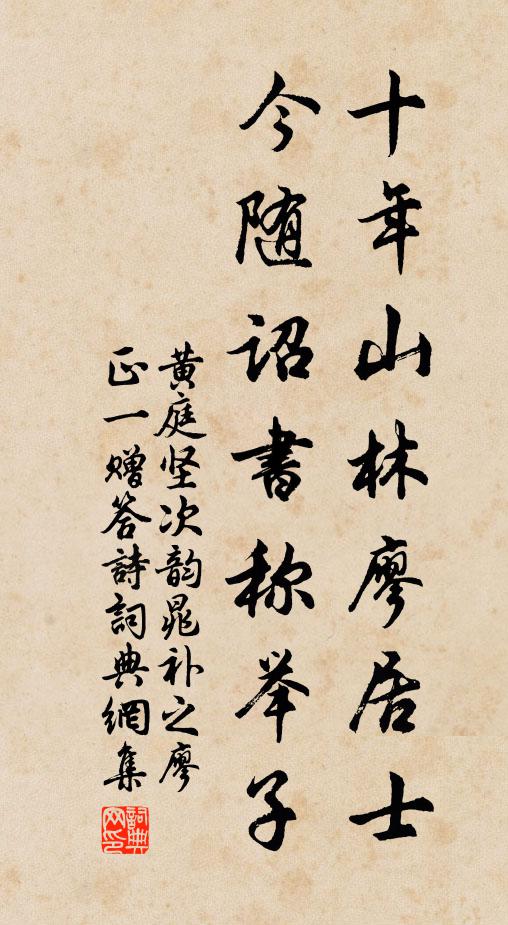 十年山林廖居士
今随诏書称举子
黄庭坚次韵晁补之廖
正一赠答詩詞典網集
詞典网印